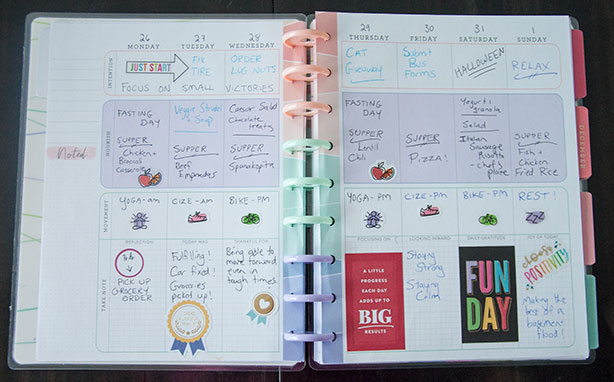 26 27 28
MONDAY TUESDAY WEDNESDAY
INTENTION
JUST START
FOCUS ON
FIX
TIRE
SMALL
ORDER
LUG NUTS
VICTORIES
NOURISH
FASTING
DAY
SUPPER
Chicken +
Broccoli
Casserole
Veggie
Soup
SUPPER
Beef
Empanadas
Caesar Salad
Chocolate
treats
SUPPER
Spanakopita
Noted
MOVEMENT
YOGA-am
CIZE-am
BIKE-PM
TAKE NOTE
REFLECTION
PICK UP
GROCERY
ORDER
TODAY WAS
Fulfilling!
Car fixed!
Groceries
picked up!
THANKFUL FOR
Being able
to move
forward
even in
tough times.
29 30 31 1
THURSDAY FRIDAY SATURDAY SUNDAY
CAT
Giveaway
Submit
Bus
Forms
HALLOWEEN
RELAX
FASTING
DAY
SUPPER
Lentil
Chili
SUPPER
Pizza!
Yogurt +
granola
Salad
Italian
Sausage
Risotto
- chef's
plate
SUPPER
Fish +
Chicken
Fried Rice
YOGA-PM
CIZE-PM
BIKE-PM
REST!
ZZZ
FOCUSING ON
A LITTLE
PROGRESS
EACH DAY
ADDS UP TO
BIG
RESULTS
LOOKING TOWARD
Staying
Strong
Staying
Calm
DAILY GRATITUDE
FUN
DAY
JOY OF TODAY
choose
POSITIVITY
Making the
best of a
basement
flood!
DECEMBER